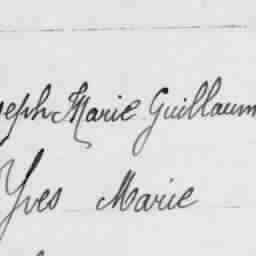 seph Marie Guillaum
Yves Marie